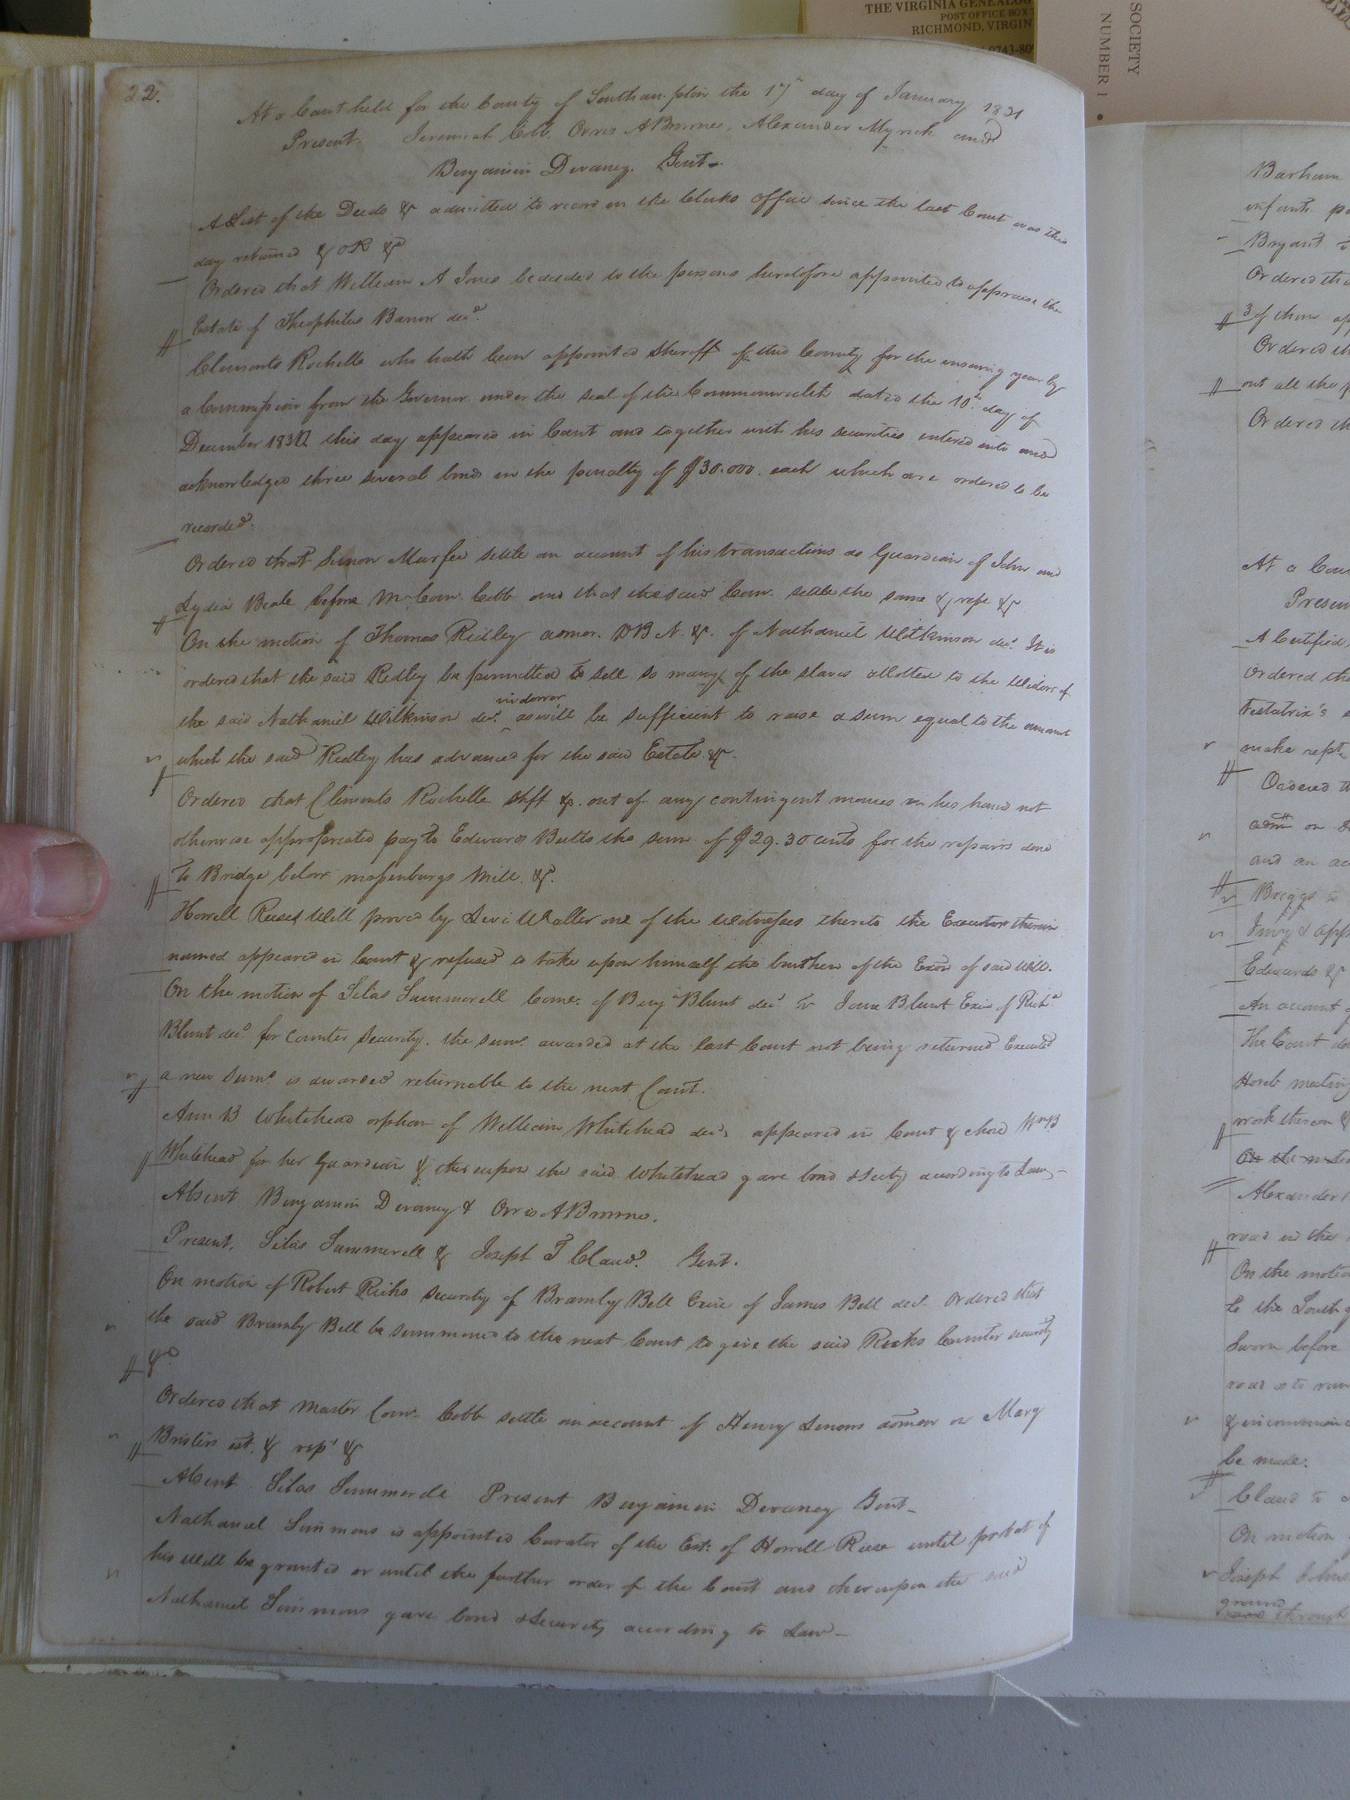 THE VIRGINIA GENEALOG
POST OFFICE BOX
RICHMOND, VIRGIN
SOCIETY
NUMBER 1
22.
At a Court held for the County of Southampton the 17th day of January 1831
Present Jeremiah Cobb. Orris A Browne, Alexander Myrick and
Benjamin Devaney. Gent.
A List of the Deeds &c admitted to record in the Clerks office since the last Court was this
day returned & OR &c
Ordered that William A Jones be added to the persons heretofore appointed to appraise the
Estate of Theophilus Barron decd.
Clements Rochelle who hath been appointed sheriff of this County for the ensuing year by
a Commission from the Governor under the seal of the Commonwealth dated the 10th day of
December 1830 this day appeared in Court and together with his securities entered into and
acknowledged three several bonds in the penalty of $30.000. each which are ordered to be
recorded.
Ordered that Simon Murfee settle an account of his transactions as Guardian of John and
Lydia Beale before Mr. Com. Cobb and that the said Com. settle the same & repo &c
On the motion of Thomas Ridley admor. DBN. &c. of Nathaniel Wilkinson decd. It is
ordered that the said Ridley be permitted to sell so many of the slaves allotted to the Widow of
in dower
the said Nathaniel Wilkinson decd. as will be sufficient to raise a sum equal to the amount
which the said Ridley has advanced for the said Estate &c.
Ordered that Clements Rochelle Shff &c. out of any contingent monies in his hand not
otherwise appropreated pay to Edward Butts the sum of $29.30 cents for the repairs done
to Bridge below massenburgs Mill. &c.
Howell Reeses Will proved by Levi Waller one of the witnesses thereto the Executor therein
named appeared in Court & refused to take upon himself the burthen of the Exon of said will.
On the motion of Silas Summerell Come. of Benj Blunt decd v Jona Blunt Exor of Richd
Blunt decd for Counter Security. the sums. awarded at the last Court not being returned Executed
a new Sums is awarded returnable to the next Court.
Ann B Whitehead orphan of William Whitehead decd appeared in Court & chose Wm B
Whitehead for her Guardian & thereupon the said Whitehead gave bond & Secty according to Law.
Absent Benjamin Devaney & Orris A Browne.
Present. Silas Summerell & Joseph T Claud. Gent.
On motion of Robert Ricks security of Bramly Bell Exor of James Bell decd. Ordered that
the said Bramly Bell be summoned to the next Court to give the said Ricks Counter security
&c
Ordered that Master Com. Cobb settle an account of Henry Simons admon on Mary
est. & rept &c
Absent Silas Summerell Present Benjamin Devaney Gent
Nathaniel Simmons is appointed Curator of the Est. of Howell Reese until probat of
his Will be granted or until the further order of the Court and thereupon the said
Nathaniel Simmons gave bond & Security according to Law
Barham
infants
Bryant
Ordered tha
3 of them
Ordered th
out all the
Ordered th
At a Cour
Presen
A Certified
Ordered tha
Testatrix's
make rept.
Ordered th
and an ac
Briggs
Edwards &
An account
The Court
work thereon &
On the motio
Alexander
road in the
On the motio
to the South
Sworn before
be made.
Claud
On motion
Joseph
ground
through